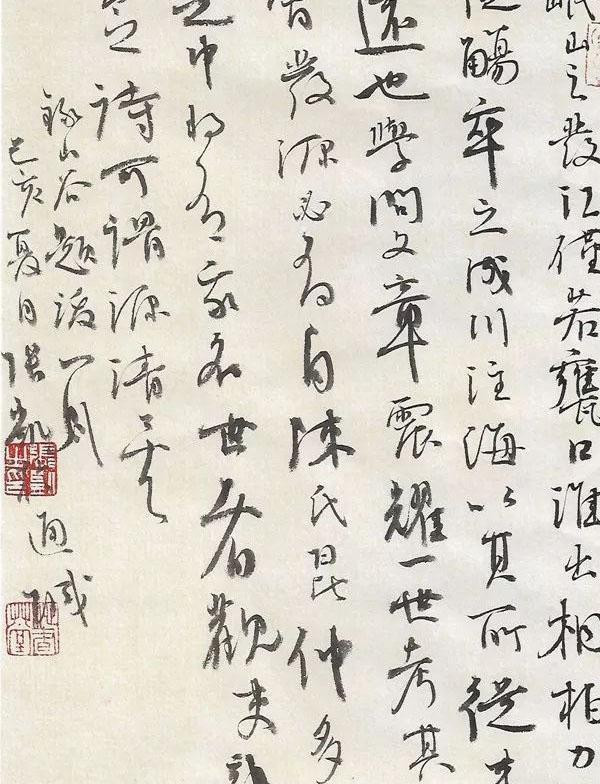 岷山之發江僅若甕口淮出相相力
觴卒之成川注海以其所從來
遠也學問文章震耀一世考其
發源必有自陳氏昆仲多
之中將有家名世者觀史
詩可謂源清矣
錄山谷題跋一則
己亥夏日張凱